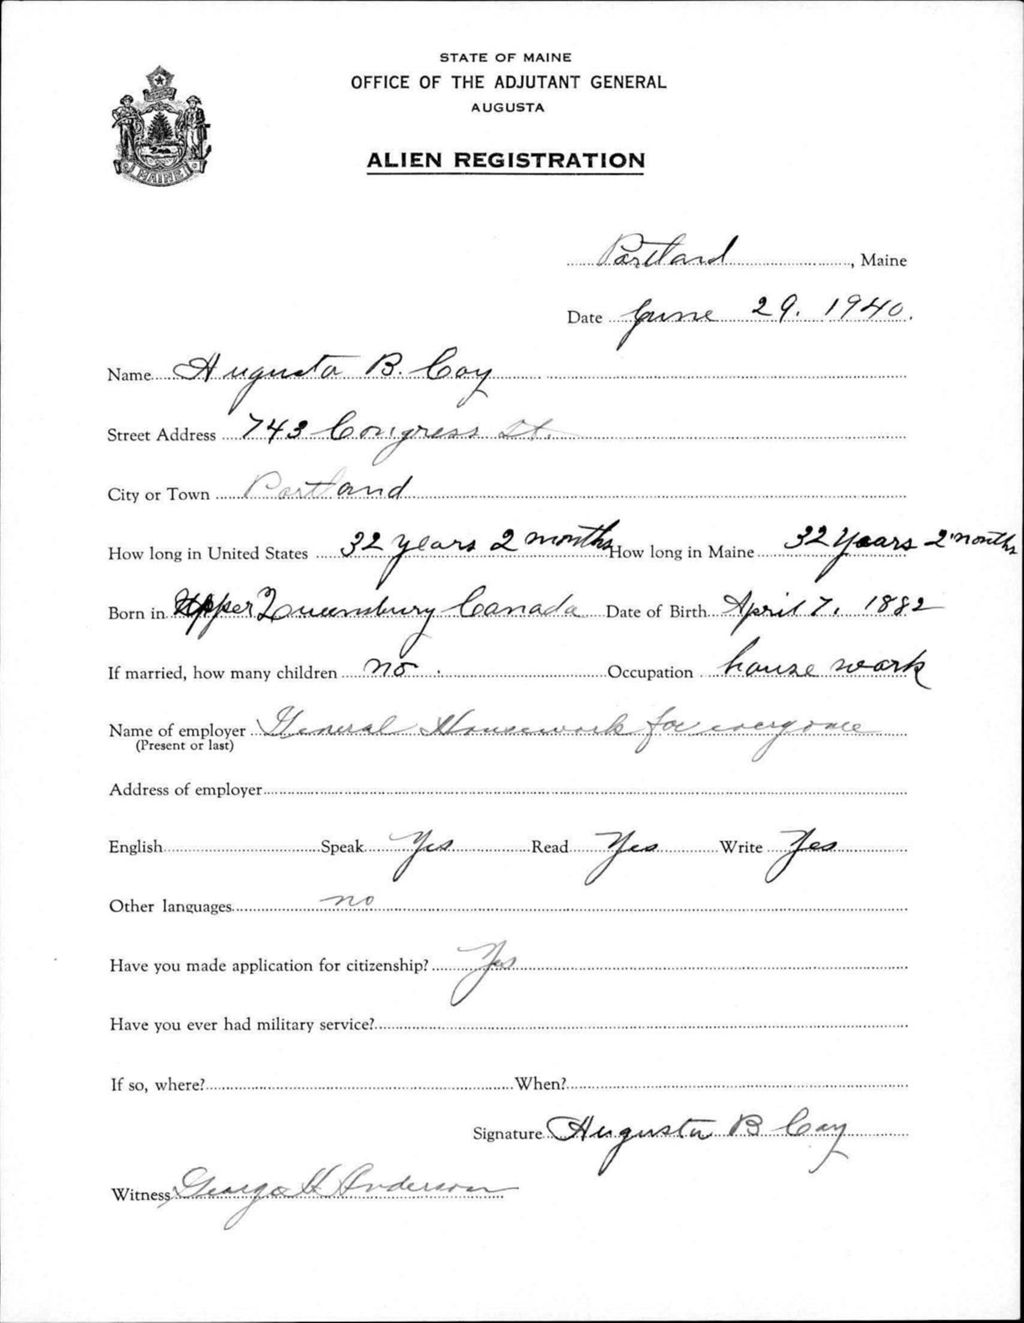 STATE OF MAINE
OFFICE OF THE ADJUTANT GENERAL
AUGUSTA
ALIEN REGISTRATION
MAINE
Portland, Maine
Date June 29. 1940.
Name Augusta B. Coy
Street Address 743 Congress St.
City or Town Portland
How long in United States 32 years 2 months How long in Maine 32 years 2 months
Born in Upper Queensbury Canada Date of Birth April 7, 1882
If married, how many children no. Occupation house work
Name of employer General Housework for everyone
(Present or last)
Address of employer
English Speak Yes Read Yes Write Yes
Other languages no
Have you made application for citizenship? Yes
Have you ever had military service?
If so, where? When?
Signature Augusta B Coy
Witness George H Anderson